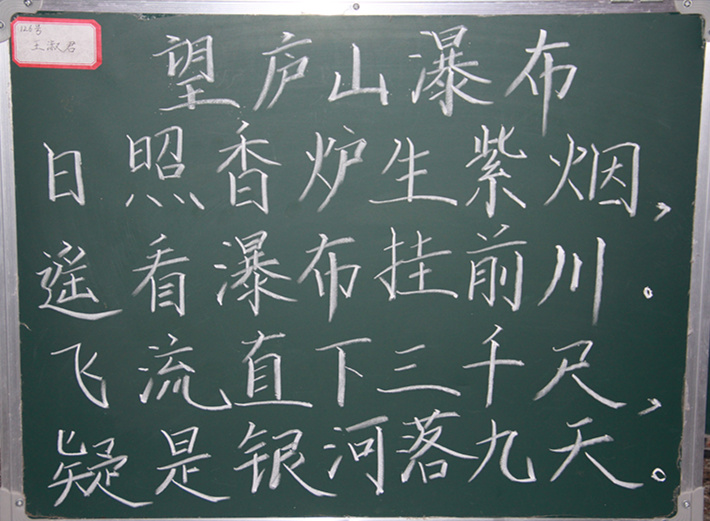 126号
王淑君
望庐山瀑布
日照香炉生紫烟，
遥看瀑布挂前川。
飞流直下三千尺，
疑是银河落九天。